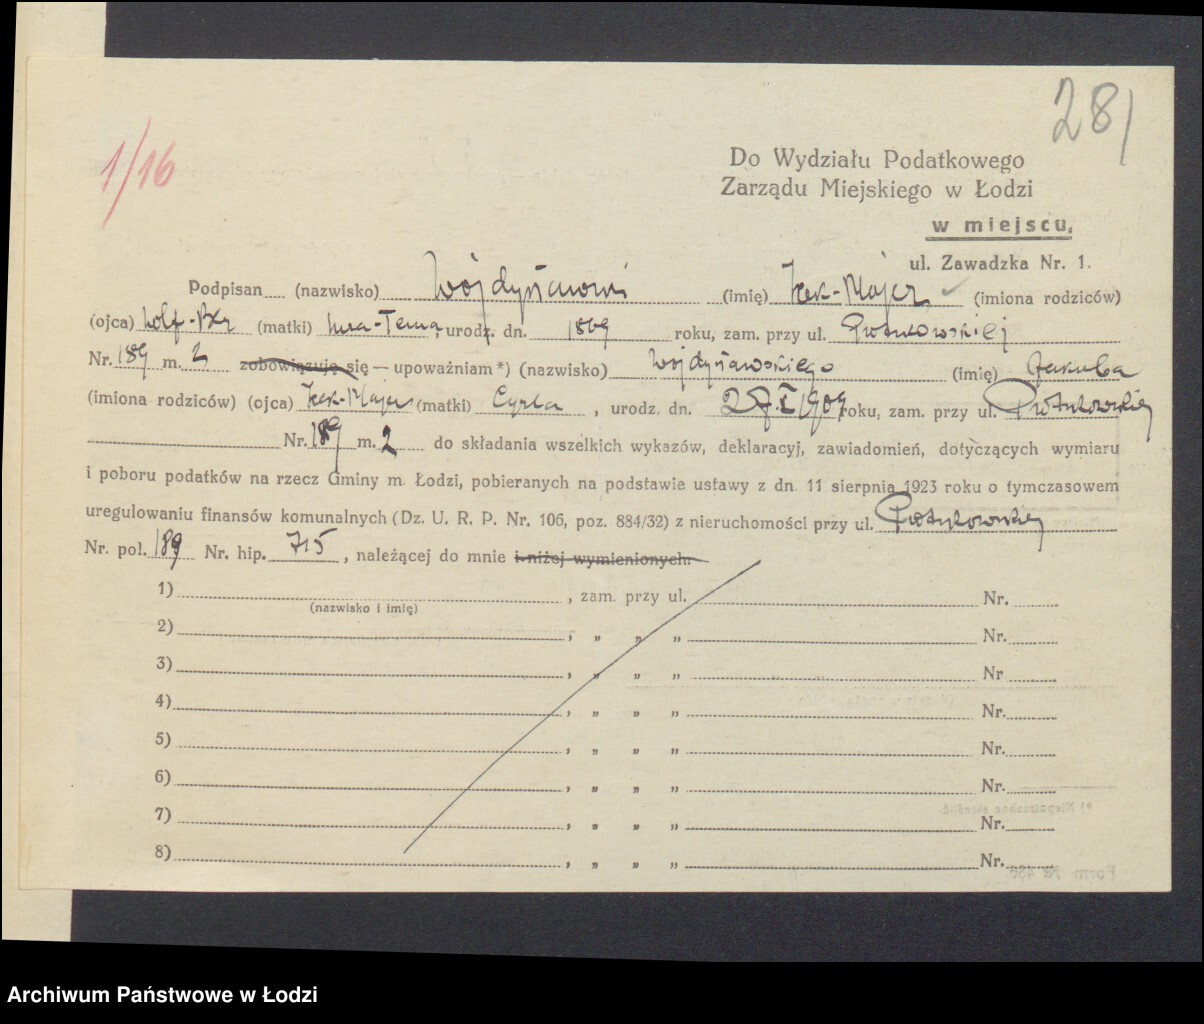 281
1/16
Do Wydziału Podatkowego
Zarządu Miejskiego w Łodzi
w miejscu,
ul. Zawadzka Nr. 1.
Podpisan (nazwisko) (imię) Icek-Majer (imiona rodziców)
(ojca) Wolf-Ber (matki) , urodz. dn. 1869 roku, zam. przy ul. Piotrkowskiej
Nr. 189 m. 2 zobowiązuję się — upoważniam *) (nazwisko) Wojdysławskiego (imię) Jakuba
(imiona rodziców) (ojca) Icek-Majer (matki) Cyrla , urodz. dn. 1909 roku, zam. przy ul. Piotrkowskiej
Nr. 189 m. 2 do składania wszelkich wykazów, deklaracyj, zawiadomień, dotyczących wymiaru
i poboru podatków na rzecz Gminy m. Łodzi, pobieranych na podstawie ustawy z dn. 11 sierpnia 1923 roku o tymczasowem
uregulowaniu finansów komunalnych (Dz. U. R. P. Nr. 106, poz. 884/32) z nieruchomości przy ul. Piotrkowskiej
Nr. pol. 189 Nr. hip. 715 , należącej do mnie i niżej wymienionych:
1) , zam. przy ul. Nr.
(nazwisko i imię)
2) , „ „ „ Nr.
3) , „ „ „ Nr
4) , „ „ „ Nr.
5) , „ „ „ Nr.
6) , „ „ „ Nr.
7) , „ „ „ Nr.
8) , „ „ „ Nr.
Archiwum Państwowe w Łodzi